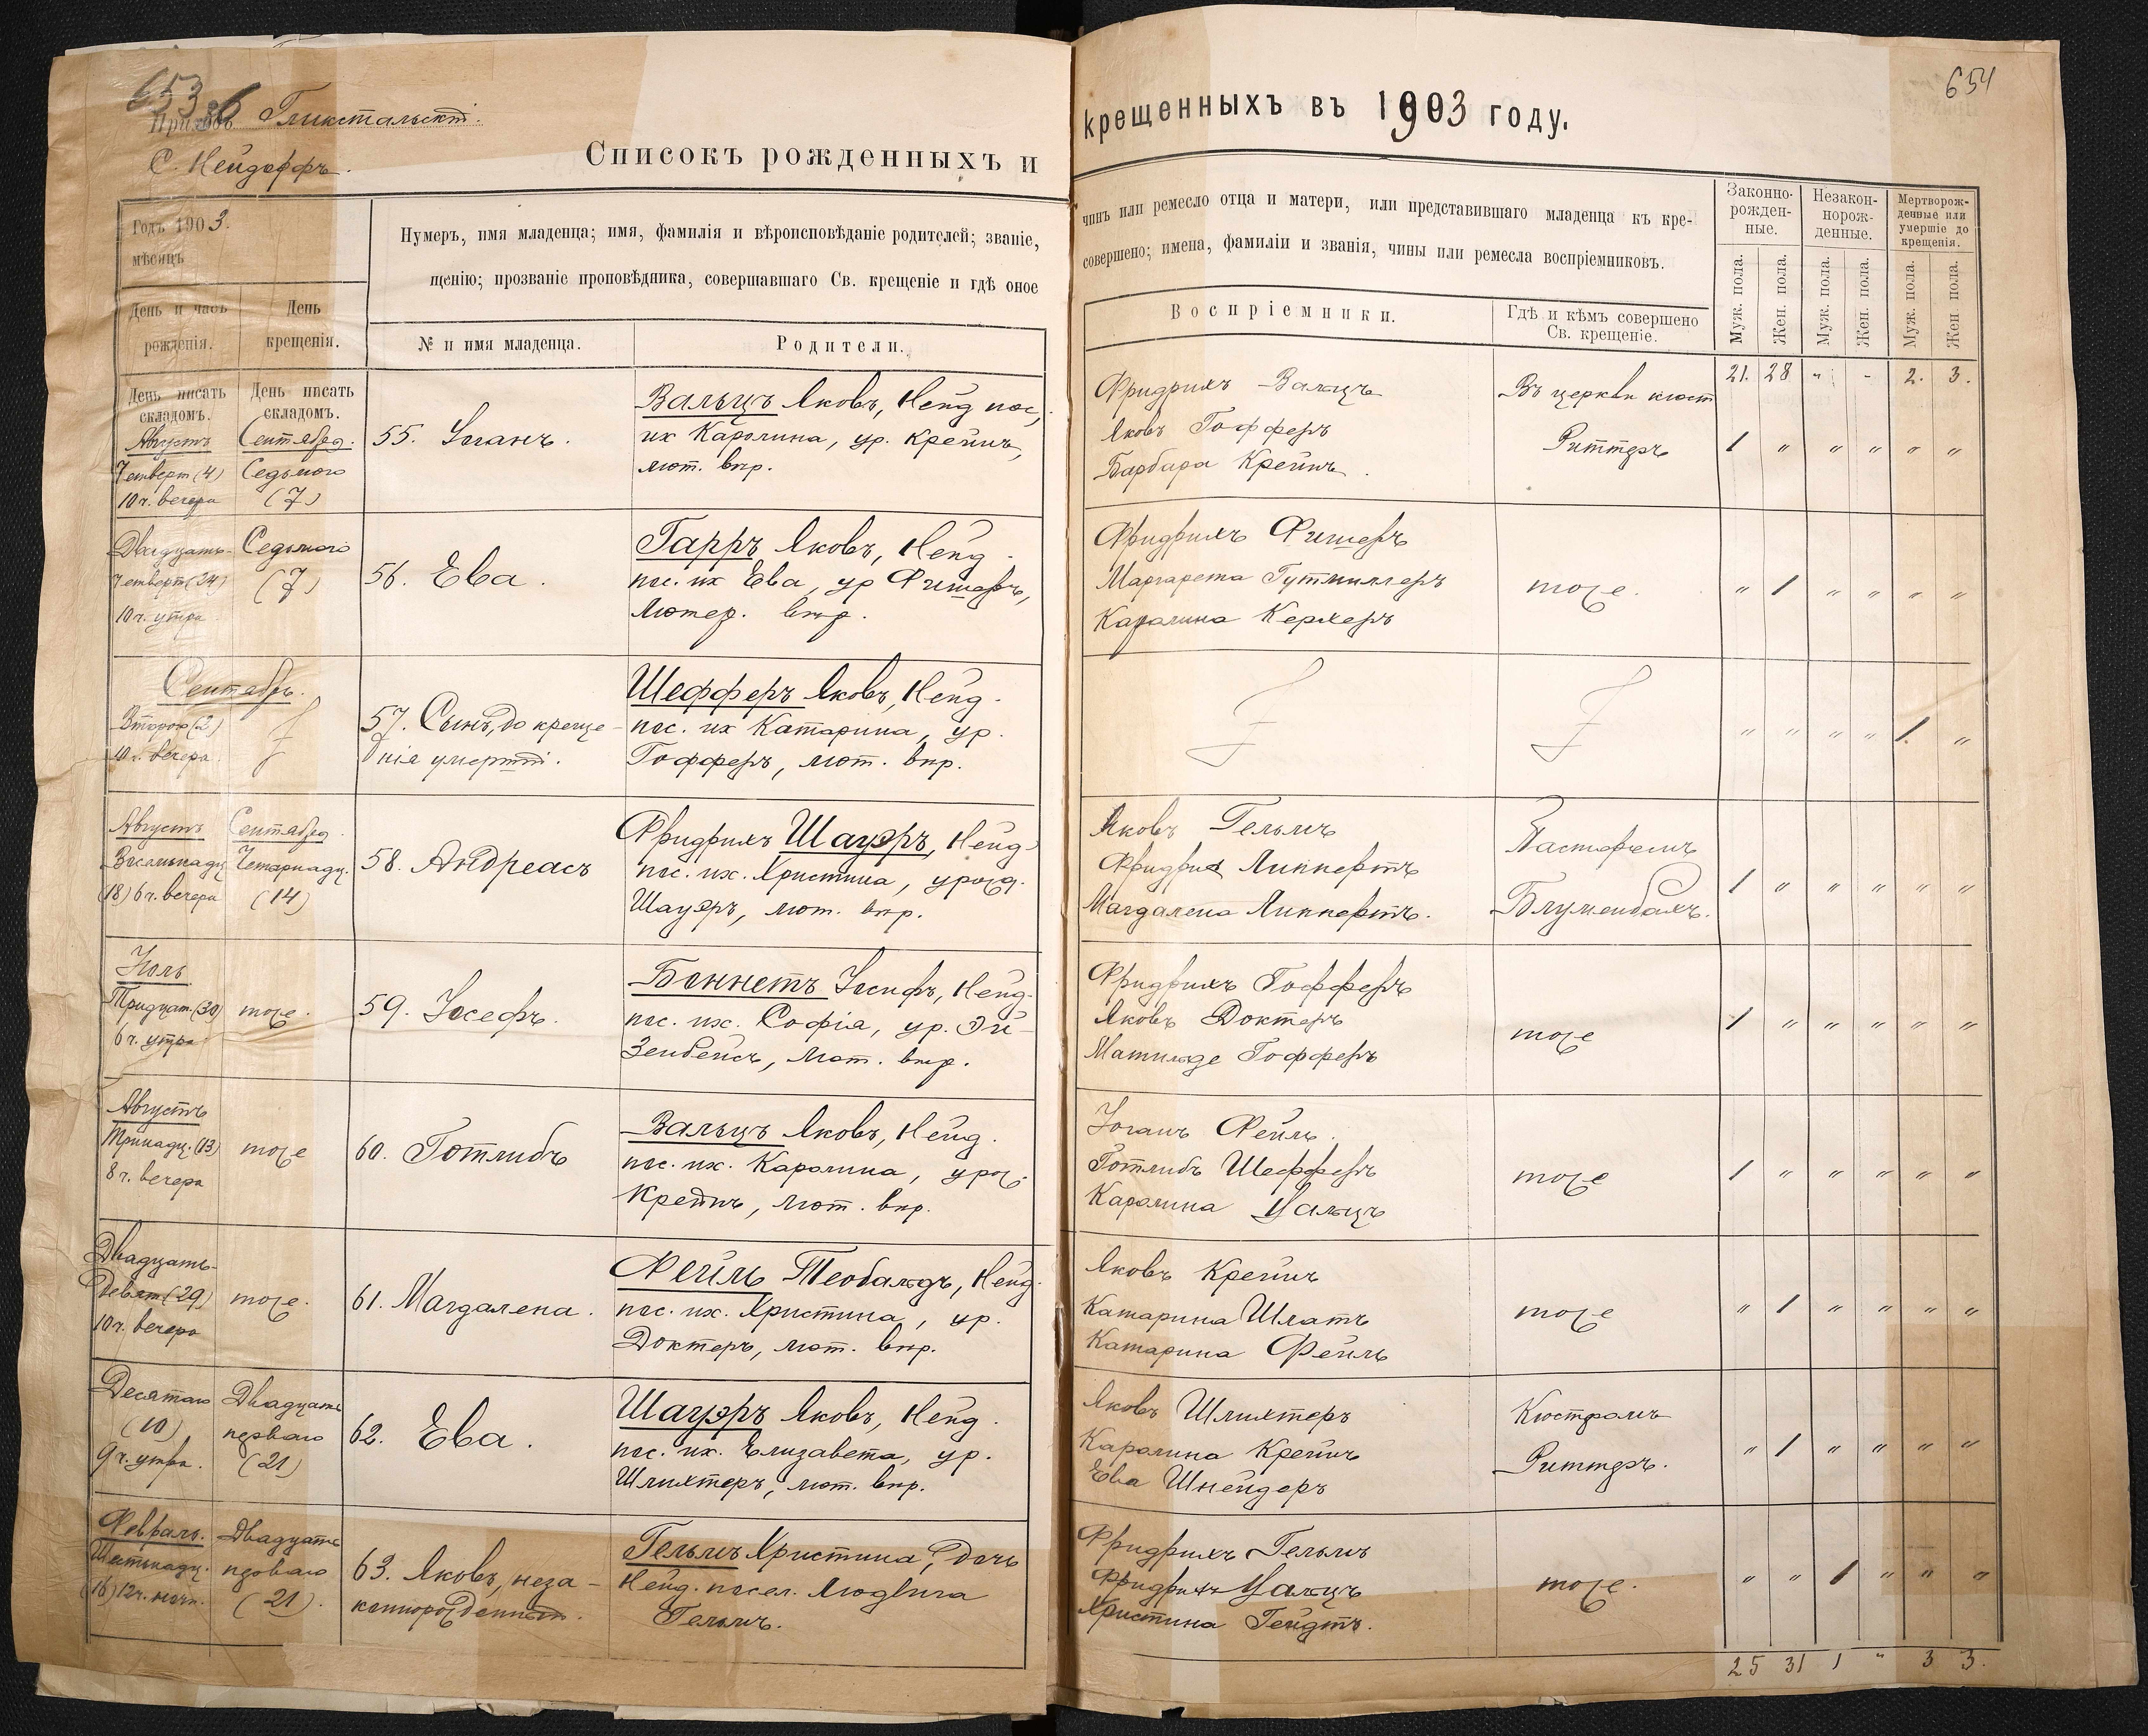 653
36
654
Приходъ Гликстальскій.
С. Нейдорфъ.
Списокъ рожденныхъ и
крещенныхъ въ 1903 году.
Годъ 1903.
мѣсяцъ
День и часъ
рожденія.
День
крещенія.
Нумеръ, имя младенца; имя, фамилія и вѣроисповѣданіе родителей; званіе,
щенію; прозваніе проповѣдника, совершавшаго Св. крещеніе и гдѣ оное
№ и имя младенца.
Родители.
чинъ или ремесло отца и матери, или представившаго младенца къ кре-
совершено; имена, фамиліи и званія, чины или ремесла воспріемниковъ.
Воспріемники.
Гдѣ и кѣмъ совершено
Св. крещеніе.
Законно-
рожден-
ные.
Незакон-
норож-
денные.
Мертворож-
денные или
умершіе до
крещенія.
Муж. пола.
Жен. пола.
Муж. пола.
Жен. пола.
Муж. пола.
Жен пола.
День писать
складомъ.
День писать
складомъ.
21. 28 " - 2. 3.
Августъ
Четверт (4)
10 ч. вечера
Сентября.
Седьмого
(7)
55. Іоганъ.
Вальцъ Яковъ, Нейд пос,
их Каролина, ур. Крейнъ,
лют. впр.
Фридрихъ Вальцъ
Яковъ Гофферъ
Барбара Крейнъ.
Въ церкви кюст
Риттеръ
1 " " " " "
Двадцать-
четверт (24)
10 ч. утра
Седьмого
(7)
56. Ева.
Гарръ Яковъ, Нейд.
пос. их Ева, ур Фишеръ,
Лютер. впр.
Фридрихъ Фишеръ
Маргарета Гутмиллеръ
Каралина Керхеръ
тоже.
" 1 " " " "
Сентябрь.
Второго (2)
10 ч. вечера
57. Сынъ, до креще-
нія умершій.
Шефферъ Яковъ, Нейд.
пос. их Катарина, ур.
Гофферъ, лют. впр.
" " " " 1. "
Августъ
Восемьнадц
(18) 6 ч. вечера
Сентября
Четарнадц.
(14)
58. Андреасъ
Фридрихъ Шауэръ, Нейд.
пос. их. Христина, урожд.
Шауэръ, лют. впр.
Яковъ Гельмъ
Фридрих Липпертъ
Магдалена Липпертъ.
Пасторомъ
Блуменбахъ.
1 " " " " "
Іюль
Тридцат. (30)
6 ч. утра
тоже.
59. Іосефъ.
Боннетъ Іосифъ, Нейд.
пос. их. Софія, ур. Эй-
зенбейсъ, лют. впр.
Фридрихъ Гофферъ
Яковъ Доктеръ
Матильде Гофферъ
тоже
1 " " " " "
Августъ
Тринадц. (13)
8 ч. вечера
тоже
60. Готлибъ
Вальцъ Яковъ, Нейд.
пос. их. Каролина, урож.
Крейнъ, лют. впр.
Іоганъ Фейль.
Готлибъ Шефферъ
Каралина Цальцъ
тоже
1 " " " " "
Двадцать-
девят (29)
10 ч. вечера
тоже.
61. Магдалена.
Фейль Теобальдъ, Нейд.
пос. их. Христина, ур.
Доктеръ, лют. впр.
Яковъ Крейнъ
Катарина Шлатъ
Катарина Фейль
тоже
" 1 " " " "
Десятаго
(10)
9 ч. утра.
Двадцать
перваго
(21)
62. Ева.
Шауэръ Яковъ, Нейд.
пос. их. Елизавета, ур.
Шлихтеръ, лют. впр.
Яковъ Шлихтеръ
Каралина Крейнъ
Ева Шнейдеръ
Кюстромъ
Риттеръ.
" 1 " " " "
Февраль.
Шестьнадц.
(16) 12 ч. ночи.
Двадцать
перваго
(21).
63. Яковъ, неза-
коннорожденный.
Гельмъ Христина, дочь
Нейд. посел. Людвига
Гельмъ.
Фридрихъ Гельмъ
Фридрихъ Цальцъ
Христина Гейдтъ.
тоже.
" " 1 " " "
25 31 1 " 3 3.